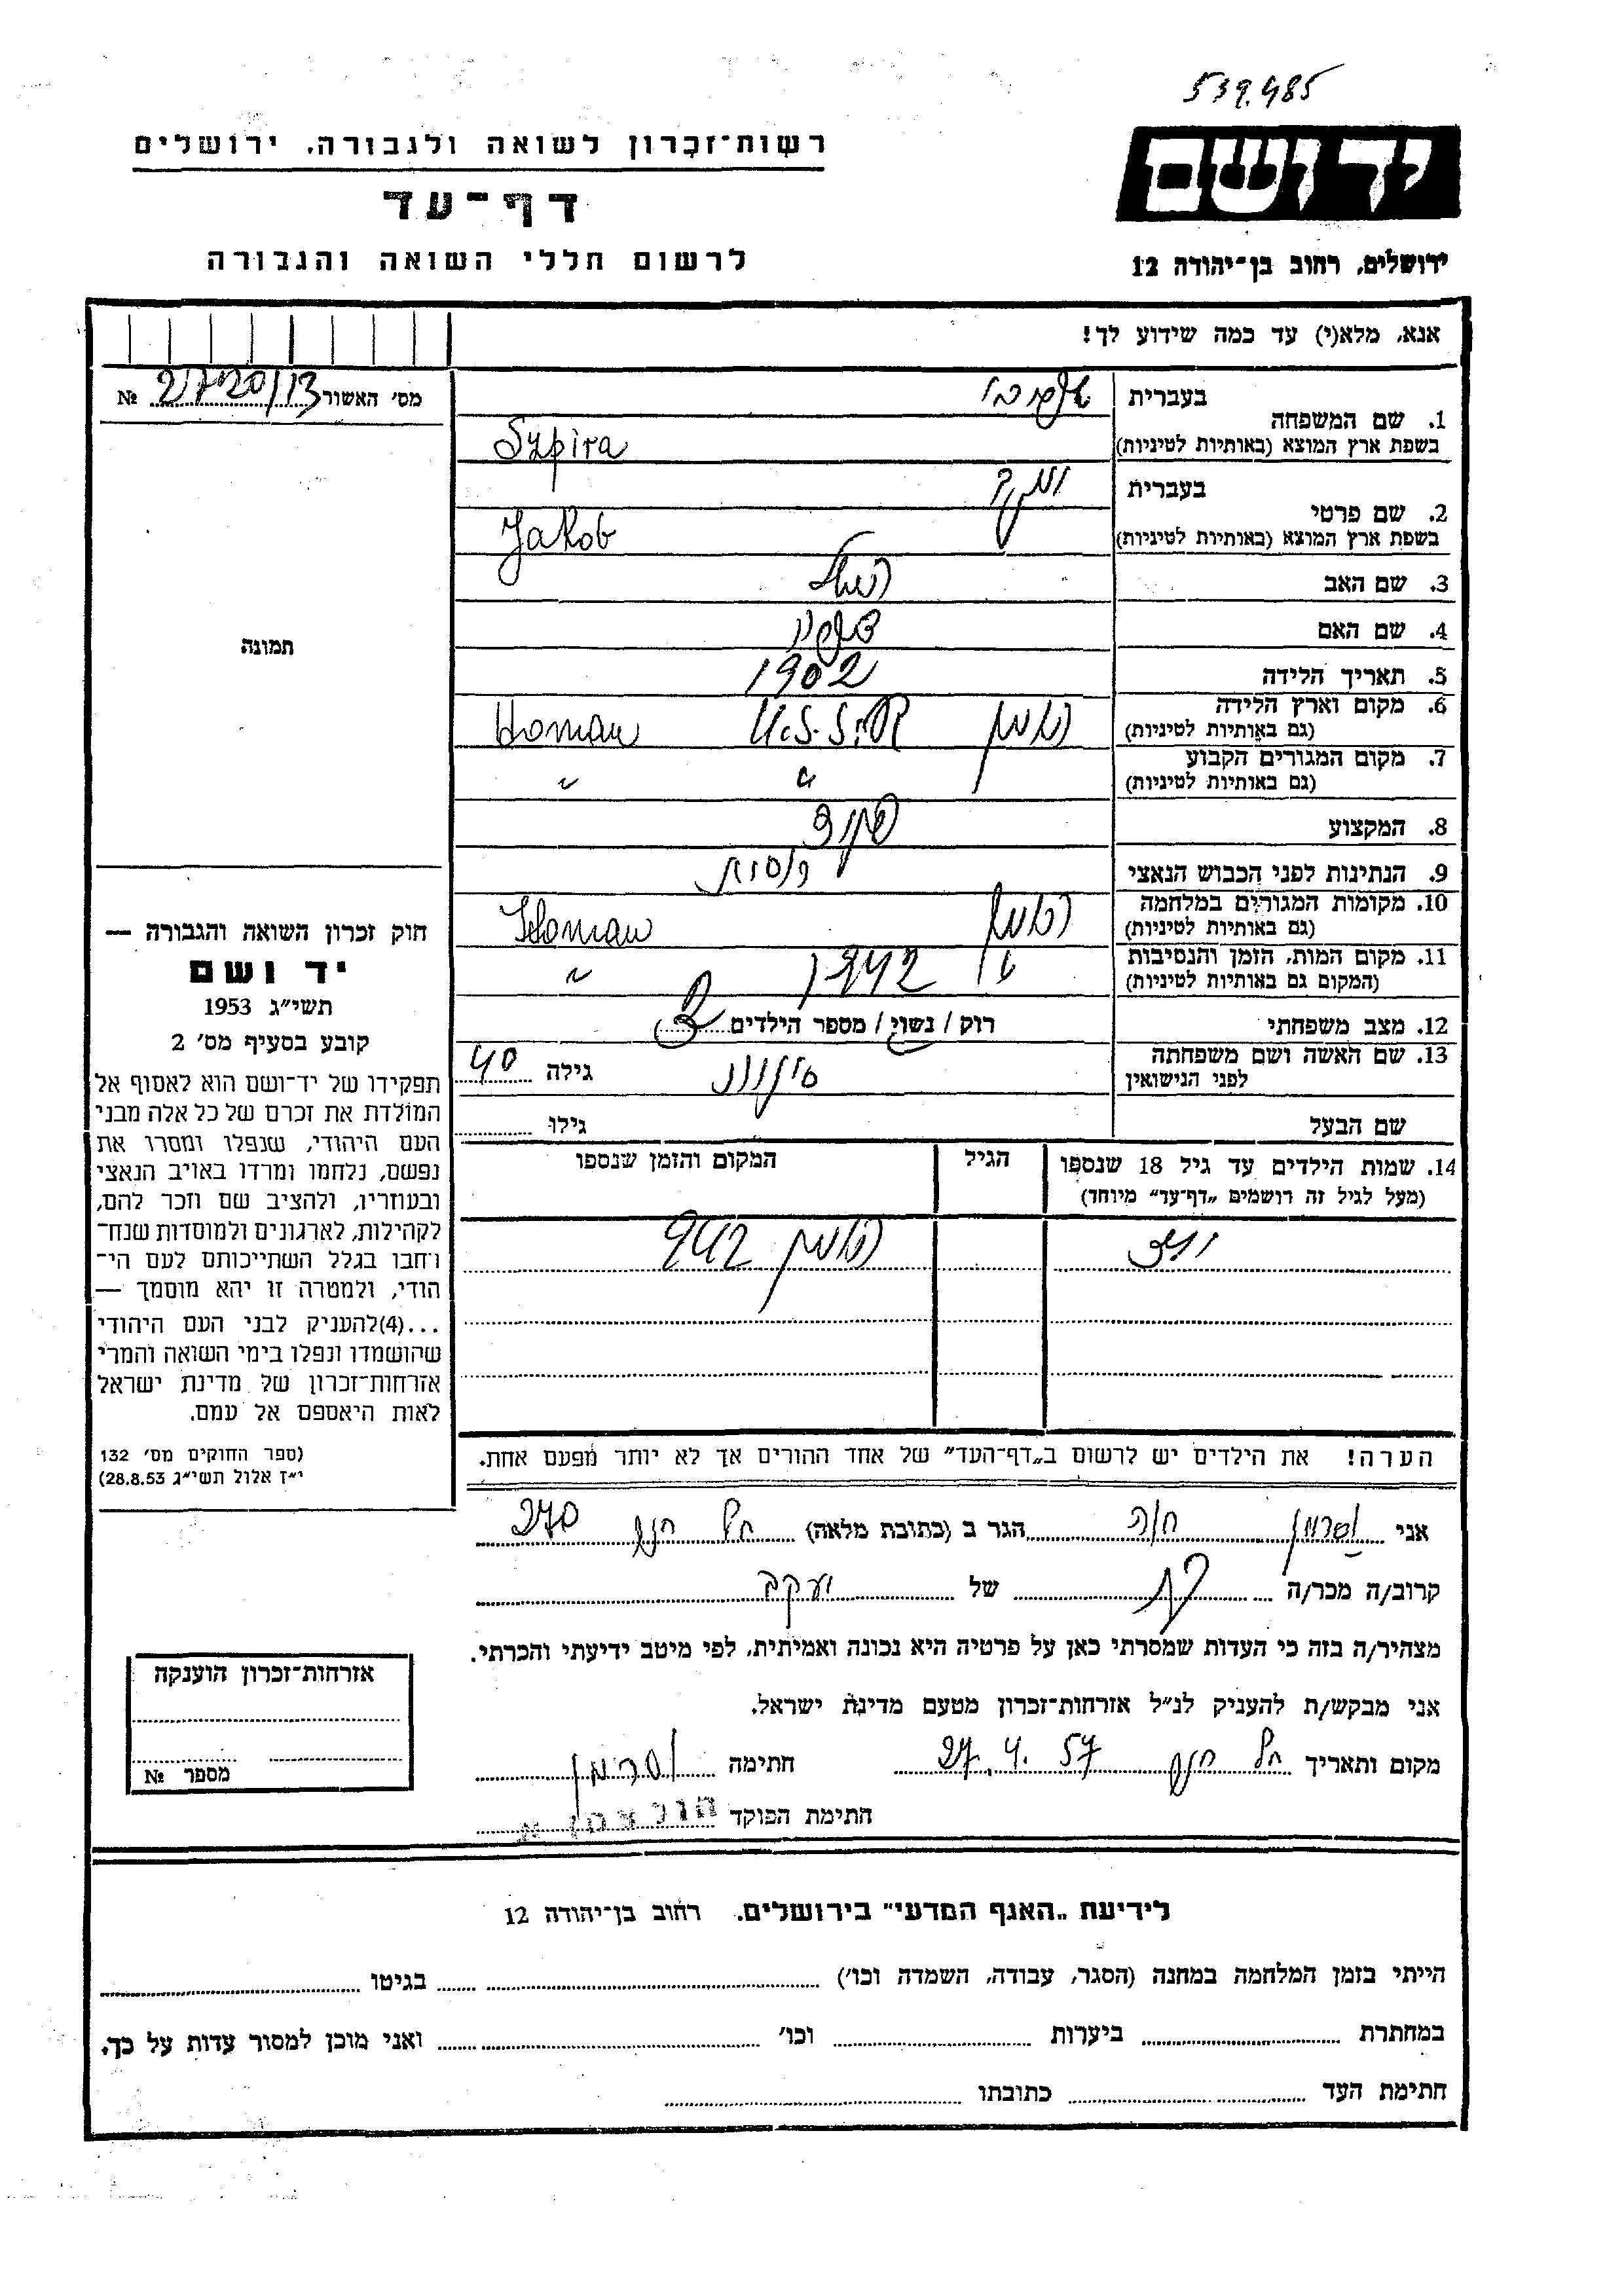 539.485
רשות־זכרון לשואה ולגבורה, ירושלים
יד ושם
דף־עד
לרשום חללי השואה והגבורה
ירושלים, רחוב בן־יהודה 12
אנא, מלא(י) עד כמה שידוע לך!
מס׳ האשור 2720/13 №
תמונה
1. שם המשפחה
בעברית
בשפת ארץ המוצא (באותיות לטיניות) Szpira
2. שם פרטי
בעברית יעקב
בשפת ארץ המוצא (באותיות לטיניות) Jakob
3. שם האב
4. שם האם
5. תאריך הלידה 1902
6. מקום וארץ הלידה
(גם באותיות לטיניות) הומן U.S.S.R Homan
7. מקום המגורים הקבוע
(גם באותיות לטיניות) " "
8. המקצוע
9. הנתינות לפני הכבוש הנאצי רוסית
10. מקומות המגורים במלחמה
(גם באותיות לטיניות) הומן Homan
11. מקום המות, הזמן והנסיבות
(המקום גם באותיות לטיניות) " 1942 "
12. מצב משפחתי רוק / נשוי / מספר הילדים
13. שם האשה ושם משפחתה
לפני הנישואין גילה 40
שם הבעל גילו
14. שמות הילדים עד גיל 18 שנספו
(מעל לגיל זה רושמים „דף־עד״ מיוחד)
הגיל
המקום והזמן שנספו
הומן 942
הערה! את הילדים יש לרשום ב„דף־העד״ של אחד ההורים אך לא יותר מפעם אחת.
חוק זכרון השואה והגבורה —
יד ושם
תשי״ג 1953
קובע בסעיף מס׳ 2
תפקידו של יד־ושם הוא לאסוף אל
המולדת את זכרם של כל אלה מבני
העם היהודי, שנפלו ומסרו את
נפשם, נלחמו ומרדו באויב הנאצי
ובעוזריו, ולהציב שם וזכר להם,
לקהילות, לארגונים ולמוסדות שנח־
רחבו בגלל השתייכותם לעם הי־
הודי, ולמטרה זו יהא מוסמך —
...(4)להעניק לבני העם היהודי
שהושמדו ונפלו בימי השואה והמרי
אזרחות־זכרון של מדינת ישראל
לאות היאספם אל עמם.
(ספר החוקים מס׳ 132
י״ז אלול תשי״ג 28.8.53)
אני וסרמן חוה הגר ב (כתובת מלאה) תל חנן 270
קרוב/ה מכר/ה בת של יעקב
מצהיר/ה בזה כי העדות שמסרתי כאן על פרטיה היא נכונה ואמיתית, לפי מיטב ידיעתי והכרתי.
אני מבקש/ת להעניק לנ״ל אזרחות־זכרון מטעם מדינת ישראל.
מקום ותאריך תל חנן 27.4.57 חתימה וסרמן
חתימת הפוקד
אזרחות־זכרון הוענקה
מספר №
לידיעת „האגף המדעי״ בירושלים, רחוב בן־יהודה 12
הייתי בזמן המלחמה במחנה (הסגר, עבודה, השמדה וכו׳) בגיטו
במחתרת ביערות וכו׳ ואני מוכן למסור עדות על כך.
חתימת העד כתובתו